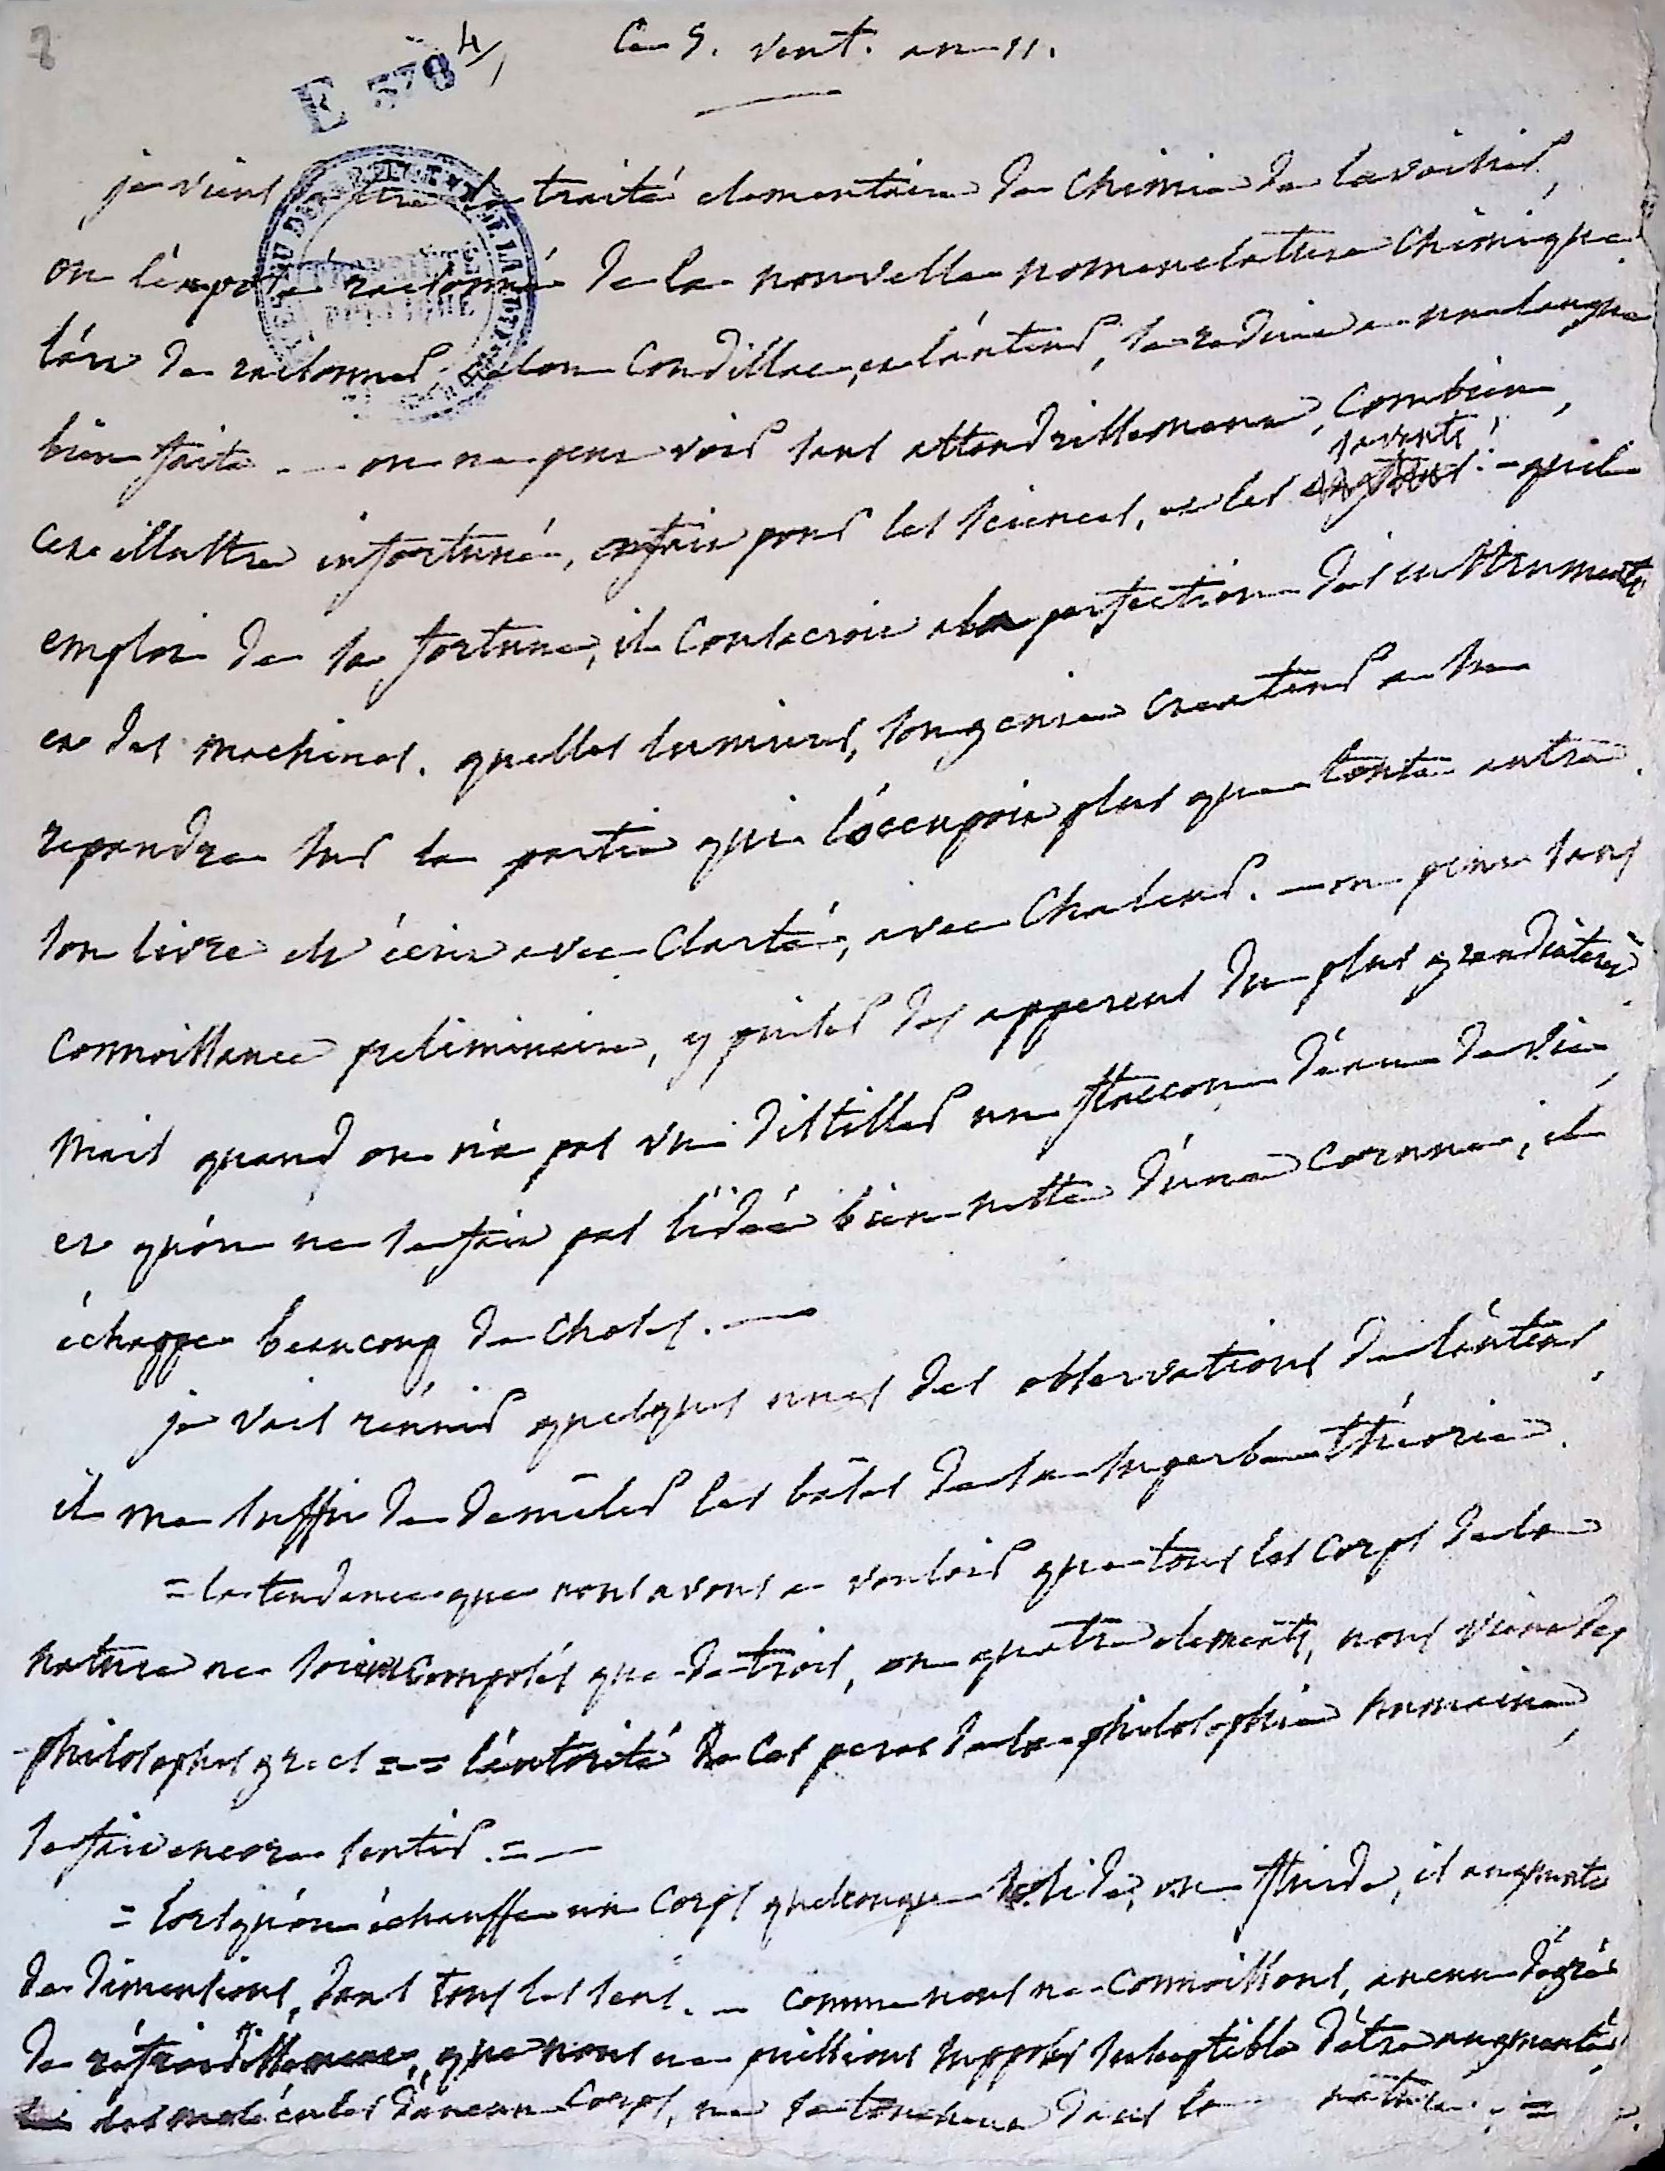 8
E 378 4/1
Ce 5. vent. an 11.
je viens lire le traité elementaire de chimie de lavoisier,
ou l'exposé raisonné de la nouvelle nomenclature chimique.
l'art de raisonner selon Condillac, et l'auteur, se reduit a une langue
bien faite. — on ne peut voir sans attendrissement, combien,
cet illustre infortuné, en fait pour les sciences, et les savants ! - quel
emploi de sa fortune, il consacroit a la perfection des instruments
et des machines. quelles lumieres, son genie createur a su
repandre sur la partie qui l'occupoit plus que toute autre.
son livre est écrit avec clarté, avec chaleur. — on peut sans
connoissance preliminaire, y puiser des apperçus du plus grand interêt.
mais quand on n'a pas vu distiller un flaccon d'eau de vie,
et qu'on ne se fait pas l'idée bien nette d'une cornue, il
échappe beaucoup de choses. —
je vais réunir quelques unes des observations de l'auteur,
il me suffit de demêler les bâses de sa superbe théorie.
= la tendance que nous avons a vouloir que tous les corps de la
nature ne soient composés que de trois, ou quatre elements, nous vient des
philosophes grecs = - = l'autorité de ces peres de la philosophie humaine,
se fait encore sentir. = —
= lorsqu'on échauffe un corps quelconque solide, ou fluide, il augmente
de dimensions, dans tous les sens. - comme nous ne connoissons, aucun dégré
de réfroidissement, que nous ne puissions supposer susceptible d'être augmenté
les molécules d'aucun corps, ne se touchent dans la nature. =